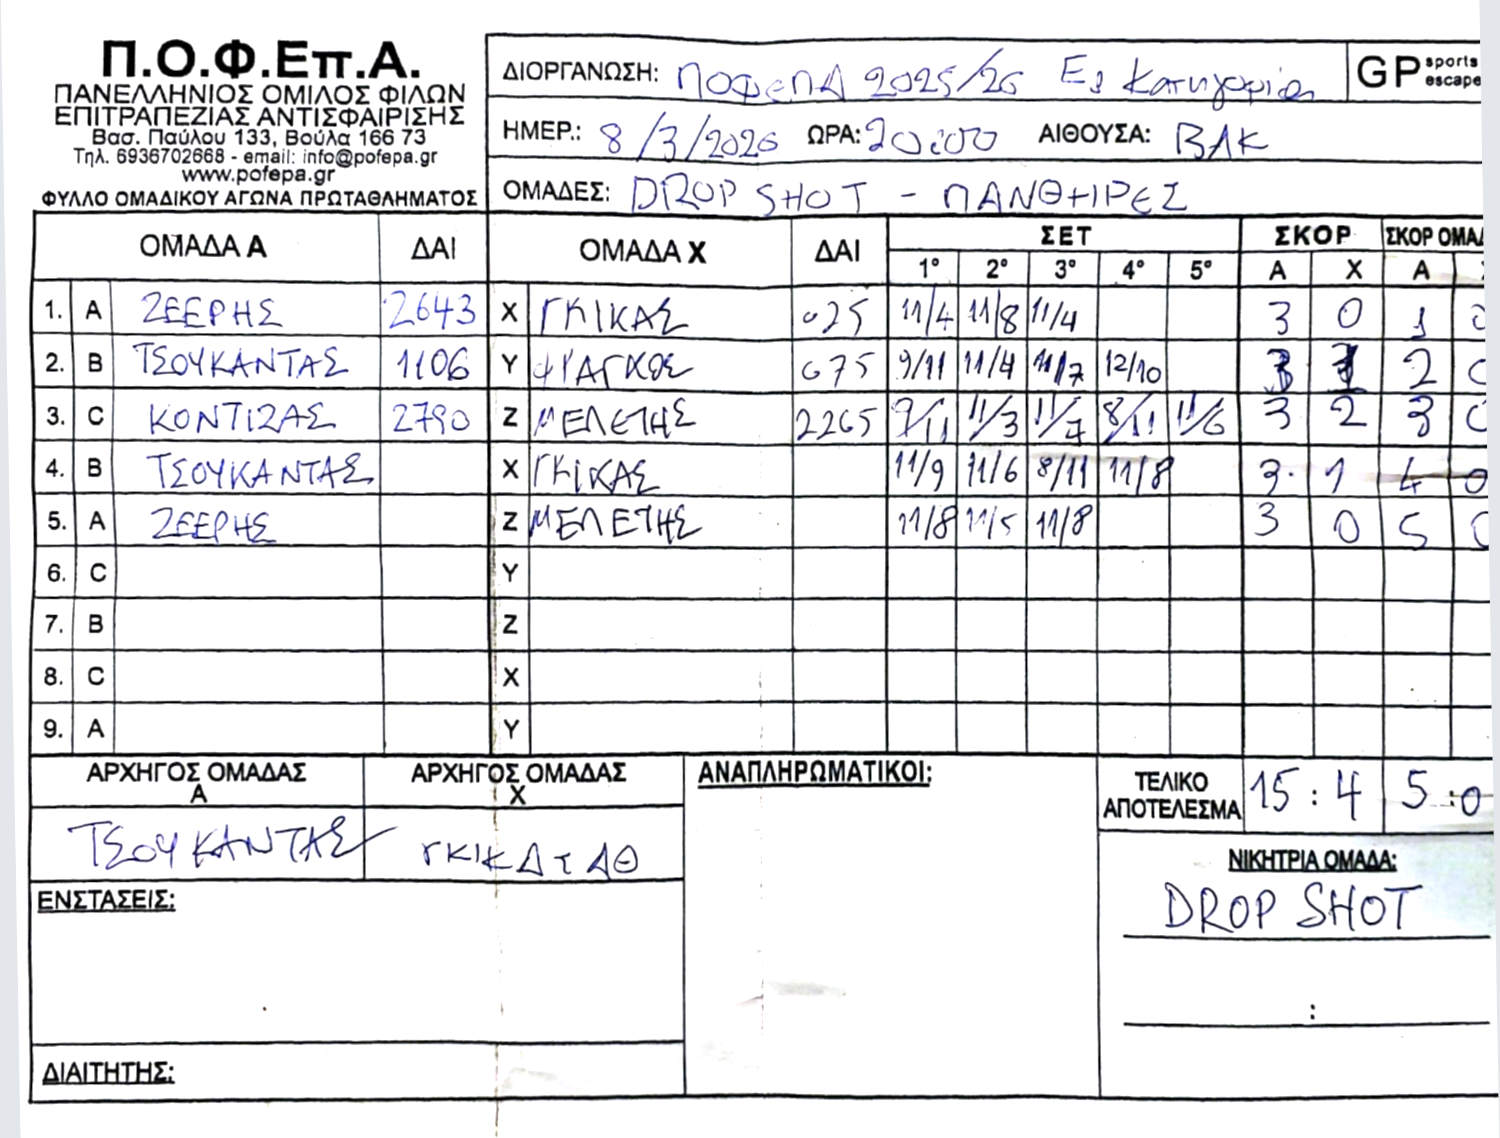 Π.Ο.Φ.Επ.Α.
ΠΑΝΕΛΛΗΝΙΟΣ ΟΜΙΛΟΣ ΦΙΛΩΝ
ΕΠΙΤΡΑΠΕΖΙΑΣ ΑΝΤΙΣΦΑΙΡΙΣΗΣ
Βασ. Παύλου 133, Βούλα 166 73
Τηλ. 6936702668 - email: info@pofepa.gr
www.pofepa.gr
ΦΥΛΛΟ ΟΜΑΔΙΚΟΥ ΑΓΩΝΑ ΠΡΩΤΑΘΛΗΜΑΤΟΣ
ΔΙΟΡΓΑΝΩΣΗ: ΠΟΦΕΠΑ 2025/26 Ε1 Κατηγορία
GP sports escape
ΗΜΕΡ.: 8/3/2026 ΩΡΑ: 20:00 ΑΙΘΟΥΣΑ: ΒΑΚ
ΟΜΑΔΕΣ: DROP SHOT - ΠΑΝΘΗΡΕΣ
ΟΜΑΔΑ Α ΔΑΙ ΟΜΑΔΑ Χ ΔΑΙ ΣΕΤ ΣΚΟΡ ΣΚΟΡ ΟΜΑΔ
1° 2° 3° 4° 5° Α Χ Α
1. A ΖΕΕΡΗΣ 2643 X ΓΚΙΚΑΣ 025 11/4 11/8 11/4 3 0 1 0
2. B ΤΣΟΥΚΑΝΤΑΣ 1106 Y ΦΡΑΓΚΟΣ 675 9/11 11/4 11/7 12/10 3 1 2 0
3. C ΚΟΝΤΙΖΑΣ 2790 Z ΜΕΛΕΤΗΣ 2265 7/11 11/3 11/7 8/11 11/6 3 2 3 0
4. B ΤΣΟΥΚΑΝΤΑΣ X ΓΚΙΚΑΣ 11/9 11/6 8/11 11/8 3 1 4 0
5. A ΖΕΕΡΗΣ Z ΜΕΛΕΤΗΣ 11/8 11/5 11/8 3 0 5 0
6. C Y
7. B Z
8. C X
9. A Y
ΑΡΧΗΓΟΣ ΟΜΑΔΑΣ Α ΑΡΧΗΓΟΣ ΟΜΑΔΑΣ Χ ΑΝΑΠΛΗΡΩΜΑΤΙΚΟΙ: ΤΕΛΙΚΟ ΑΠΟΤΕΛΕΣΜΑ 15 : 4 5 : 0
ΤΣΟΥΚΑΝΤΑΣ ΓΚΙΚΑΣ ΑΘ
ΝΙΚΗΤΡΙΑ ΟΜΑΔΑ:
DROP SHOT
:
ΕΝΣΤΑΣΕΙΣ:
ΔΙΑΙΤΗΤΗΣ: